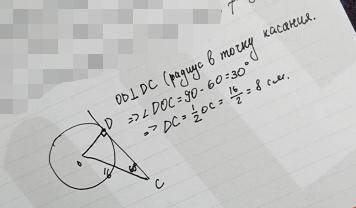 OD⊥DC (радиус в точку касания.
=> ∠DOC = 90 - 60 = 30°
=> DC = 1/2 OC = 16/2 = 8 см.
D
O
16
60
C